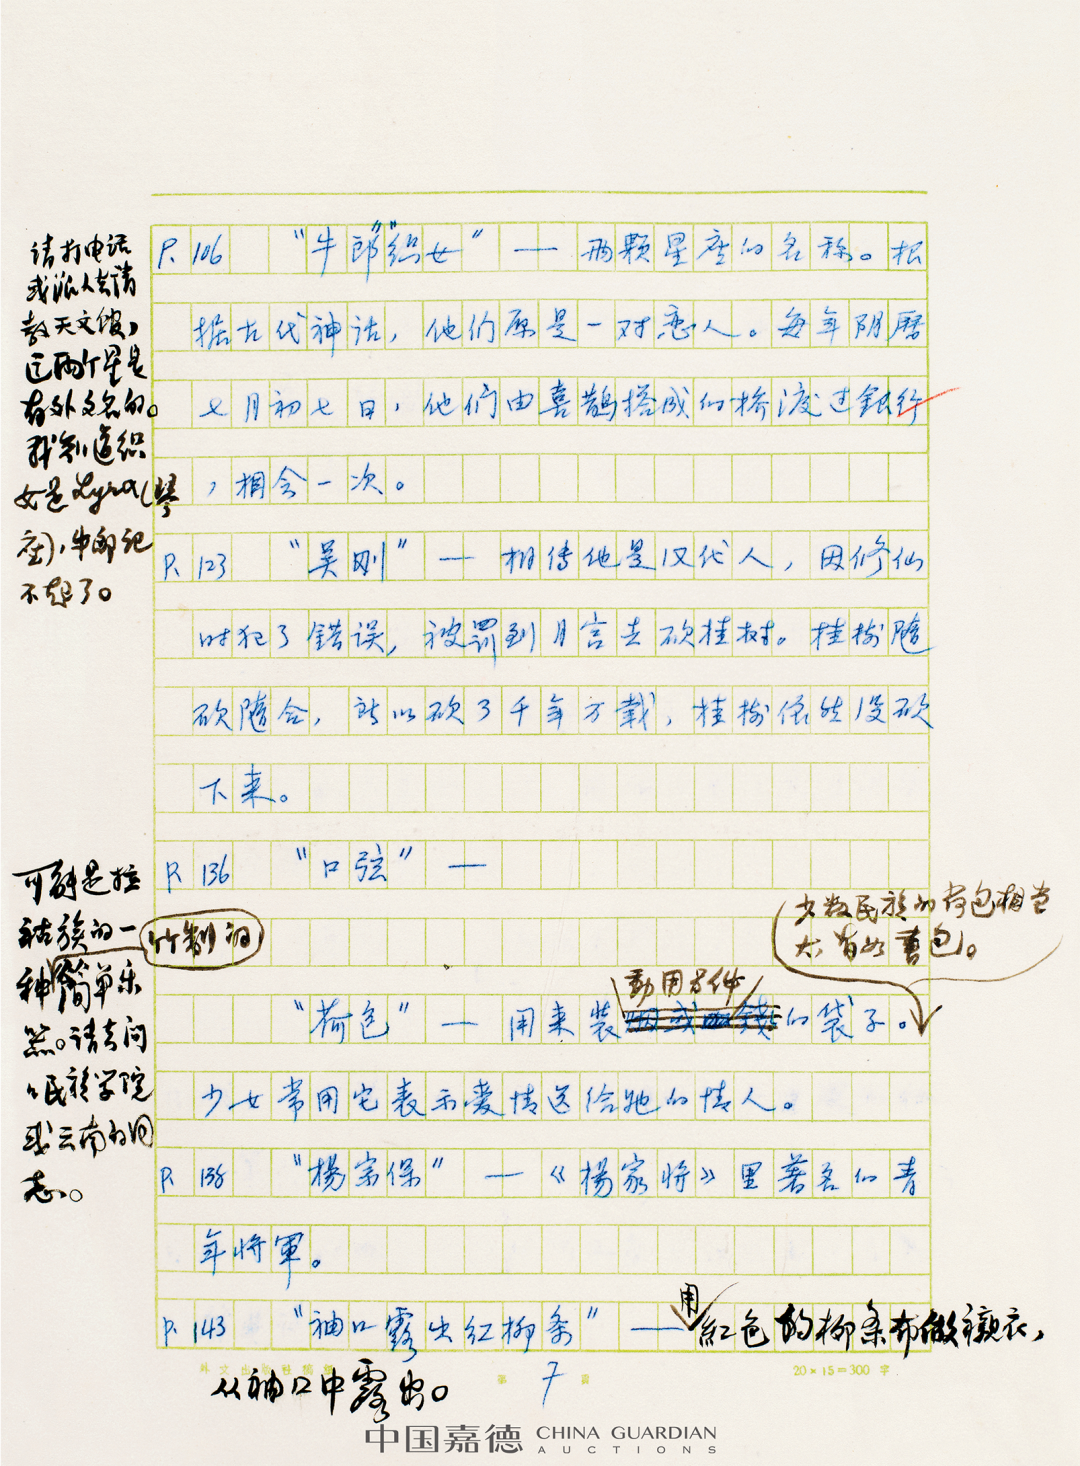 P. 106 “牛郎”“织女”—— 两颗星座的名称。根
据古代神话，他们原是一对恋人。每年阴历
七月初七日，他们由喜鹊搭成的桥渡过銀行
，相会一次。
P. 123 “吴刚”—— 相传他是汉代人，因修仙
时犯了错误，被罰到月宫去砍桂树。桂树随
砍随合，所以砍了千年万载，桂树依然没砍
下来。
P. 136 “口弦”——
“荷包”—— 用来装动用方件的袋子。
少女常用它表示爱情送给她的情人。
P. 138 “楊宗保”——《楊家将》里著名的青
年将軍。
P. 143 “袖口露出红柳条”—— 用紅色的柳条布做襯衣，
从袖口中露出。
请打电话
或派人去请
教天文馆，
这两个星是
有外文名的。
我知道织
女是Lyra（琴
座），牛郎记
不起了。
可能是拉
祜族的一
种竹制的簡单乐
器。请去问
民族学院
或云南的同
志。
少数民族的荷包相当
大 有如書包。
外文出版社稿纸
第 7 頁
20×15=300 字
中国嘉德 CHINA GUARDIAN
AUCTIONS